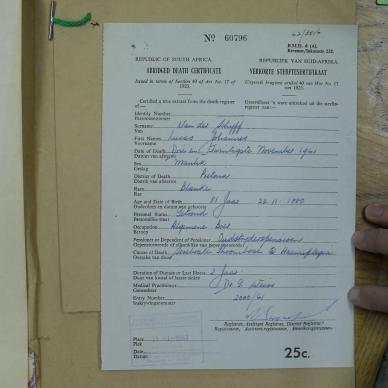 62/2516
No 60796
B.M.D. 6 (A).
Revenue/Inkomste 252.
REPUBLIC OF SOUTH AFRICA. REPUBLIEK VAN SUID-AFRIKA.
ABRIDGED DEATH CERTIFICATE VERKORTE STERFTESERTIFIKAAT
Issued in terms of Section 40 of Act No. 17 of 1923. Uitgereik kragtens artikel 40 van Wet No. 17 van 1923.
Certified a true extract from the death register of— Gesertifiseer 'n ware uittreksel uit die sterfteregister van—
Identity Number
Persoonsnommer
Surname Van der Schyff
Van
First Names Lucas Johannes
Voorname
Date of Death November 1961
Datum van afsterwe
Sex Manlik
Geslag
District of Death Pretoria
Distrik van afsterwe
Race Blanke
Ras
Age and Date of Birth 81 Jaar 22.11.1880
Ouderdom en datum van geboorte
Personal Status Getroud
Persoonlike staat
Occupation Algemene Boer
Beroep
Pensioner or Dependent of Pensioner Oudstryderspensioen
Gepensioeneerde of afhanklike van pensioentrekker
Cause of Death Cerebrale Trombose
Oorsaak van dood
Duration of Disease or Last Illness 2 Jaar
Duur van kwaal of laaste siekte
Medical Practitioner Dr. G.
Geneesheer
Entry Number 2000/61
Inskrywingsnommer
Registrar, Assistant Registrar, District Registrar
Registrateur, Assistent-registrateur, Distriksregistrateur
Place
Plek
Date
Datum
25c.